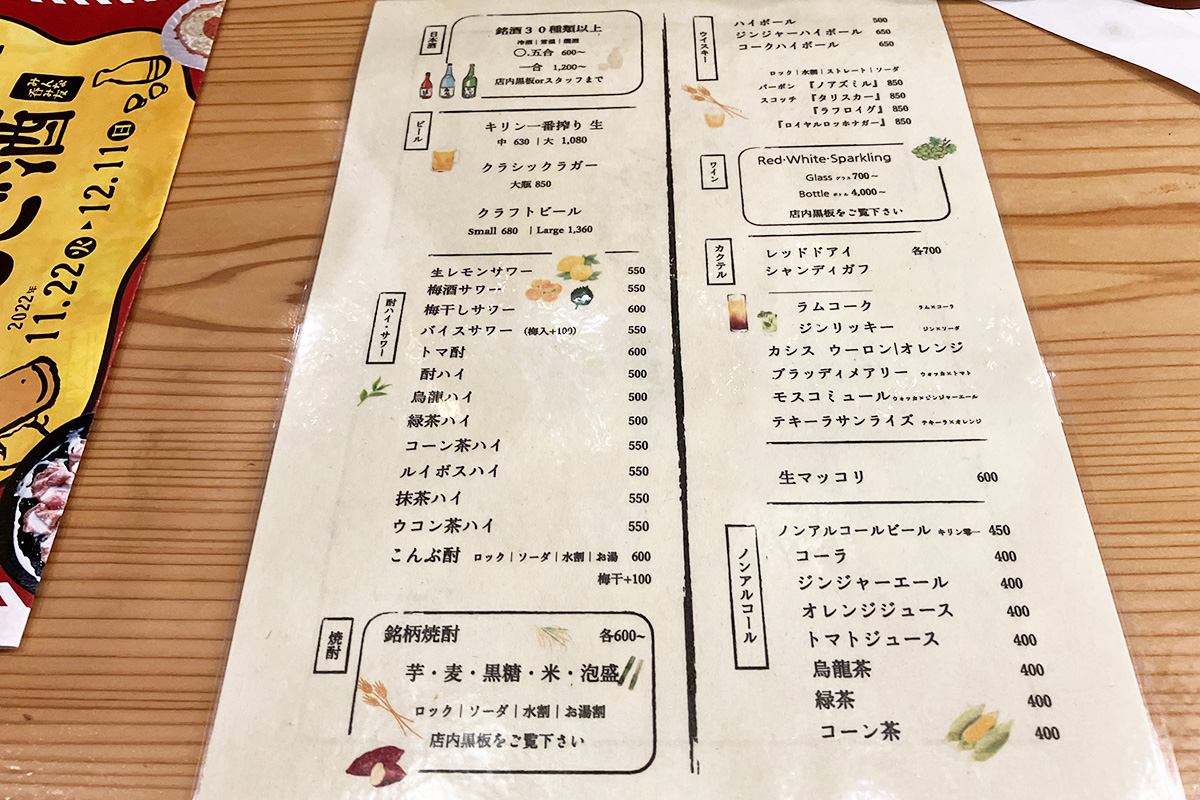 みんな
呑みな
酒
2022年
11.22 火 ▶ 12.11 日
日本酒
銘酒30種類以上
冷酒|常温|燗酒
〇.五合 600〜
一合 1,200〜
店内黒板orスタッフまで
ビール
キリン一番搾り 生
中 630 | 大 1,080
クラシックラガー
大瓶 850
クラフトビール
Small 680 | Large 1,360
酎ハイ・サワー
生レモンサワー 550
梅酒サワー 550
梅干しサワー 600
バイスサワー (梅入+100) 550
トマ酎 600
酎ハイ 500
烏龍ハイ 500
緑茶ハイ 500
コーン茶ハイ 550
ルイボスハイ 550
抹茶ハイ 550
ウコン茶ハイ 550
こんぶ酎 ロック|ソーダ|水割|お湯 600
梅干+100
焼酎
銘柄焼酎 各600~
芋・麦・黒糖・米・泡盛
ロック|ソーダ|水割|お湯割
店内黒板をご覧下さい
ウイスキー
ハイボール 500
ジンジャーハイボール 650
コークハイボール 650
ロック|水割|ストレート|ソーダ
バーボン 『ノアズミル』 850
スコッチ 『タリスカー』 850
『ラフロイグ』 850
『ロイヤルロッホナガー』 850
ワイン
Red·White·Sparkling
Glass グラス 700〜
Bottle ボトル 4,000〜
店内黒板をご覧下さい
カクテル
レッドドアイ 各700
シャンディガフ
ラムコーク ラム×コーラ
ジンリッキー ジン×ソーダ
カシス ウーロン|オレンジ
ブラッディメアリー ウォッカ×トマト
モスコミュール ウォッカ×ジンジャーエール
テキーラサンライズ テキーラ×オレンジ
生マッコリ 600
ノンアルコール
ノンアルコールビール キリン零一 450
コーラ 400
ジンジャーエール 400
オレンジジュース 400
トマトジュース 400
烏龍茶 400
緑茶 400
コーン茶 400